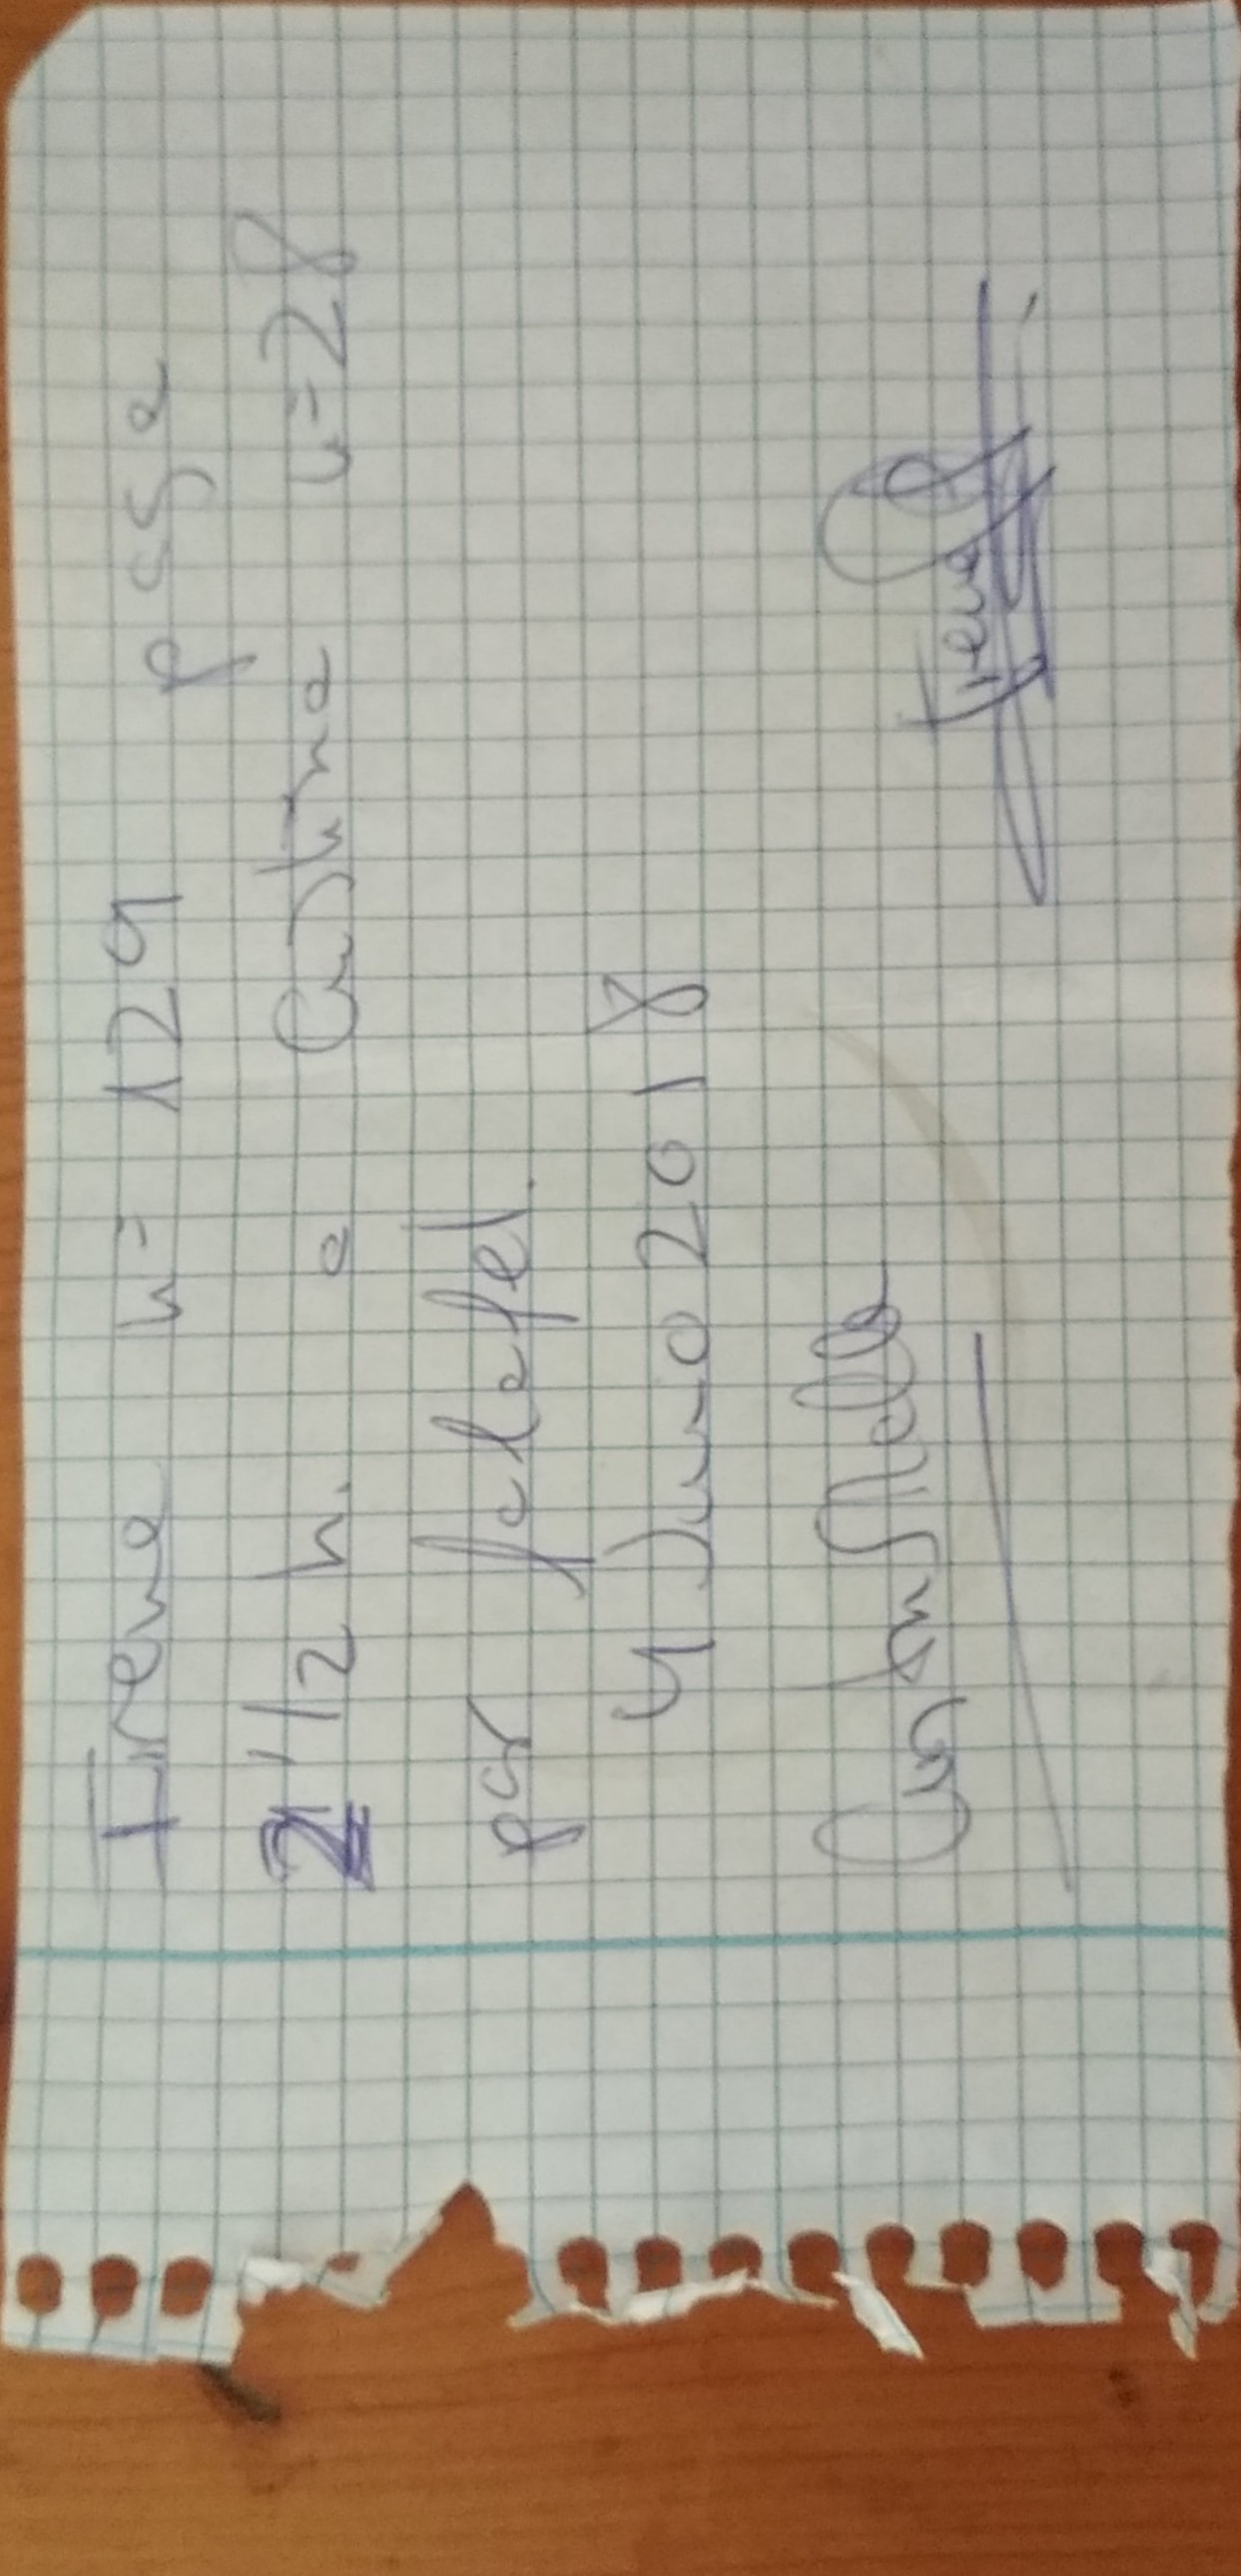 Irene n= 129 paga
2 1/2 h. a Cristina n=28
por falafel.
4 Junio 2018
Cristin Stella
Irene